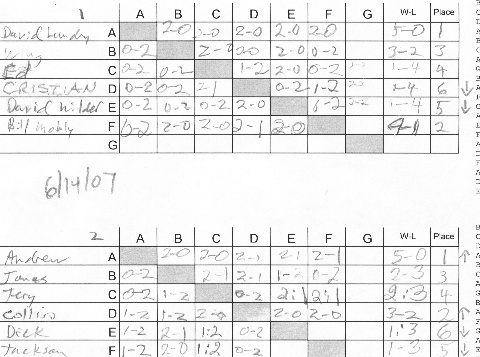 1 A B C D E F G W-L Place
David Lundy A 2-0 2-0 2-0 2-0 2-0 5-0 1
B 0-2 2-0 2-0 2-0 0-2 3-2 3
Ed C 0-2 0-2 1-2 2-0 0-2 1-4 4
CRISTIAN D 0-2 0-2 2-1 0-2 1-2 1-4 6
David E 0-2 0-2 0-2 2-0 0-2 1-4 5
Bill F 0-2 2-0 2-0 2-1 2-0 4-1 2
G
6/14/07
2 A B C D E F G W-L Place
Andrew A 2-0 2-0 2-1 2-1 2-1 5-0 1
Jonas B 0-2 2-1 2-1 1-2 0-2 2-3 3
Tery C 0-2 1-2 0-2 2:1 2:1 2:3 4
Collins D 1-2 1-2 2-0 2-0 2-0 3-2 2
Dick E 1-2 2-1 1:2 0-2 1:3 6
Jackson F 1-2 2-0 1:2 0-2 1-3 5